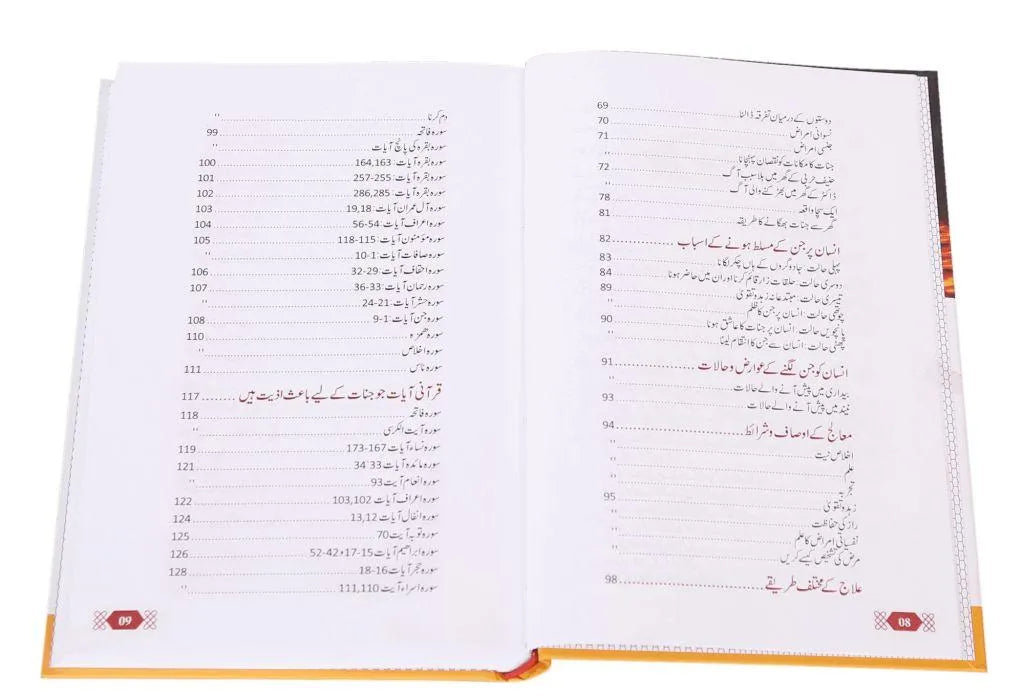 دوستوں کے درمیان تفرقہ ڈالنا ..... 69
نسوانی امراض ..... 70
جنسی امراض ..... 71
جنات کا مکانات کو نقصان پہنچانا ..... "
حنیف حربی کے گھر میں بلا سبب آگ ..... 72
ڈاکٹر کے گھر میں بھڑکنے والی آگ ..... "
ایک سچا واقعہ ..... 78
گھر سے جنات بھگانے کا طریقہ ..... 81
انسان پر جن کے مسلط ہونے کے اسباب ..... 82
پہلی حالت: جادوگروں کے ہاں چکر لگانا ..... 83
دوسری حالت: حلقات زار قائم کرنا اور ان میں حاضر ہونا ..... 84
تیسری حالت: مبتدعانہ زہد و تقویٰ ..... 89
چوتھی حالت: انسان پر جن کا ظلم ..... "
پانچویں حالت: انسان پر جنات کا عاشق ہونا ..... 90
چھٹی حالت: انسان سے جن کا انتقام لینا ..... "
انسان کو جن لگنے کے عوارض و حالات ..... 91
بیداری میں پیش آنے والے حالات ..... "
نیند میں پیش آنے والے حالات ..... 93
معالج کے اوصاف و شرائط ..... 94
اخلاص نیت ..... "
علم ..... "
تجربہ ..... "
زہد و تقویٰ ..... 95
راز کی حفاظت ..... "
نفسیاتی امراض کا علم ..... "
مرض کی تشخیص کیسے کریں ..... "
علاج کے مختلف طریقے ..... 98
08
دم کرنا ..... "
سورہ فاتحہ ..... 99
سورہ بقرہ کی پانچ آیات ..... "
سورہ بقرہ آیات: 164,163 ..... 100
سورہ بقرہ آیات: 255-257 ..... 101
سورہ بقرہ آیات: 286,285 ..... 102
سورہ آل عمران آیات: 19,18 ..... 103
سورہ اعراف آیات: 54-56 ..... 104
سورہ مؤمنون آیات: 115-118 ..... 105
سورہ صافات آیات: 1-10 ..... "
سورہ احقاف آیات: 29-32 ..... 106
سورہ رحمان آیات: 33-36 ..... 107
سورہ حشر آیات: 21-24 ..... "
سورہ جن آیات: 1-9 ..... 108
سورہ ھمزہ ..... 110
سورہ اخلاص ..... "
سورہ ناس ..... 111
قرآنی آیات جو جنات کے لیے باعث اذیت ہیں ..... 117
سورہ فاتحہ ..... 118
سورہ آیت الکرسی ..... "
سورہ نساء آیات 167-173 ..... 119
سورہ مائدہ آیات 33`34 ..... 121
سورہ انعام آیت 93 ..... "
سورہ اعراف آیات 103,102 ..... 122
سورہ انفال آیات 13,12 ..... 124
سورہ توبہ آیت 70 ..... 125
سورہ ابراھیم آیات 15-17، 42-52 ..... 126
سورہ حجر آیات 16-18 ..... 128
سورہ اسراء آیت 111,110 ..... "
09